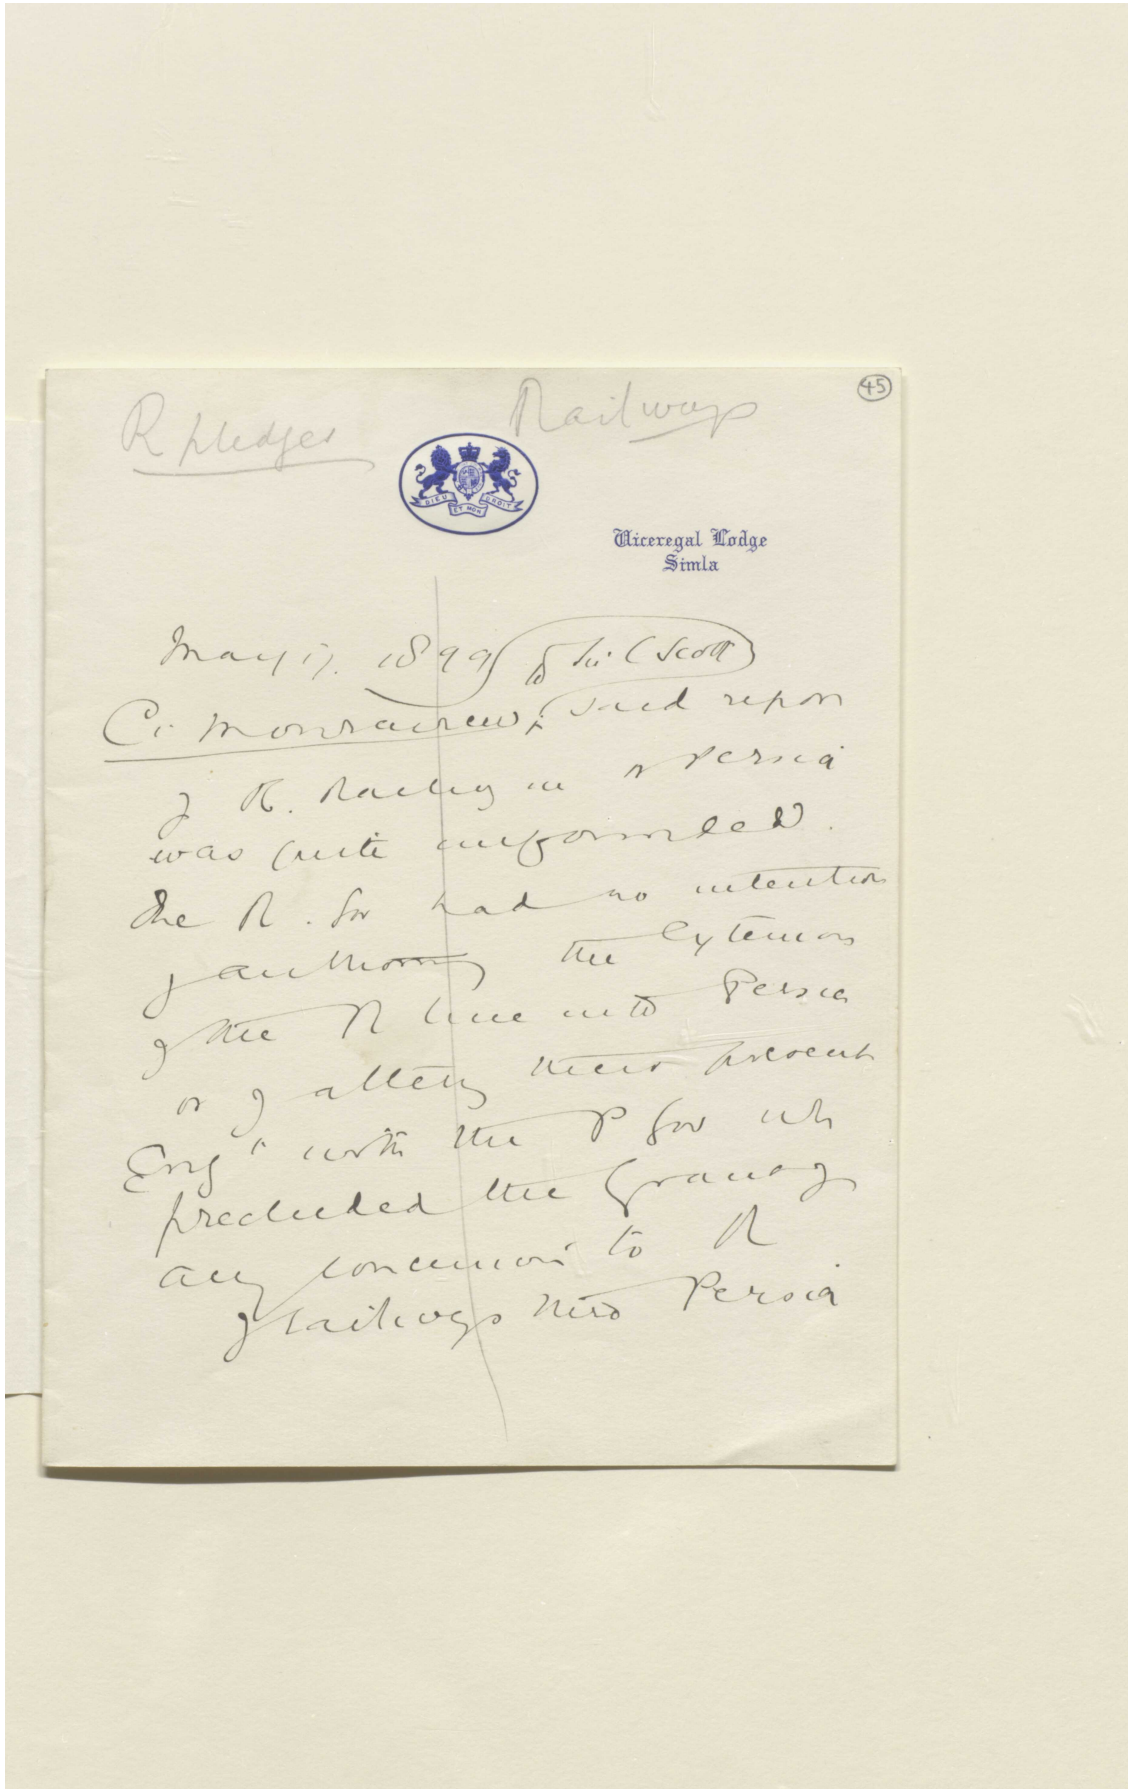 45
Railways
R pledges
DIEU ET MON DROIT
Viceregal Lodge
Simla
May 17. 1899 to Sir C Scott
Ct Mouravieff, said report
of R. Railway in N Persia
was quite unfounded.
The R. Gov had no intention
of authorising the extension
of the R line into Persia
or of altering their present
Engt with the P Gov wh
precluded the grant of
any concession to R
of railways into Persia